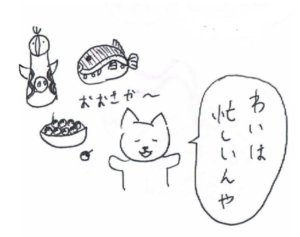 わいは
忙しいんや
おおさか～